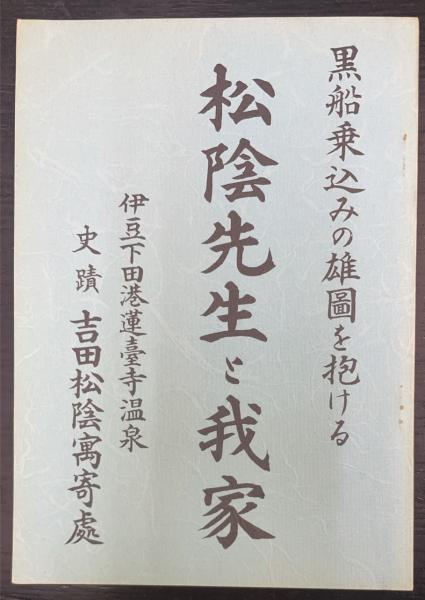 黒船乗込みの雄圖を抱ける
松陰先生と我家
伊豆下田港蓮臺寺温泉
史蹟 吉田松陰寓寄處